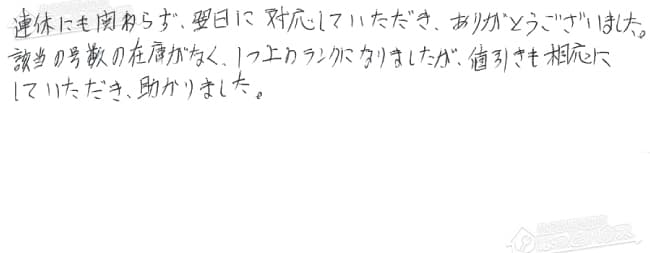 連休にも関わらず、翌日に対応していただき、ありがとうございました。
該当の号数の在庫がなく、1つ上のランクになりましたが、値引きも相応に
していただき、助かりました。